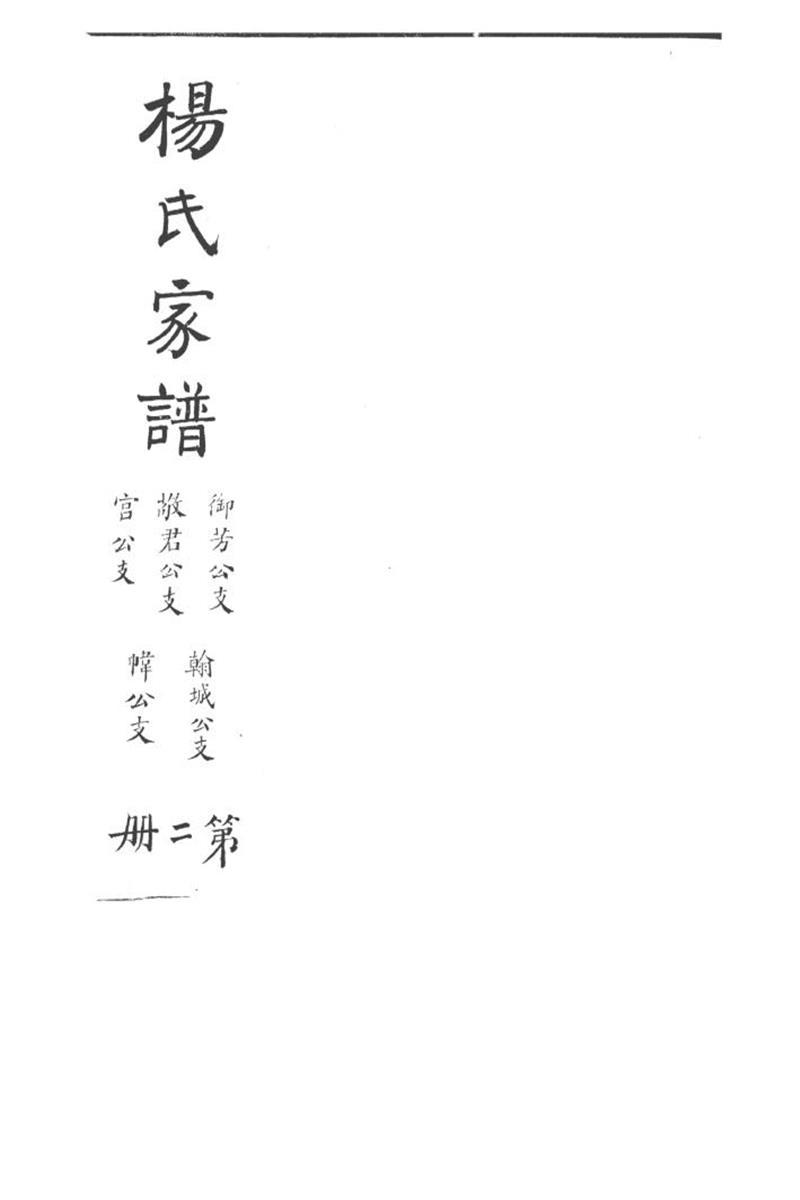 楊氏家譜
御芳公支
敬君公支
宫公支
翰城公支
幃公支
第二册